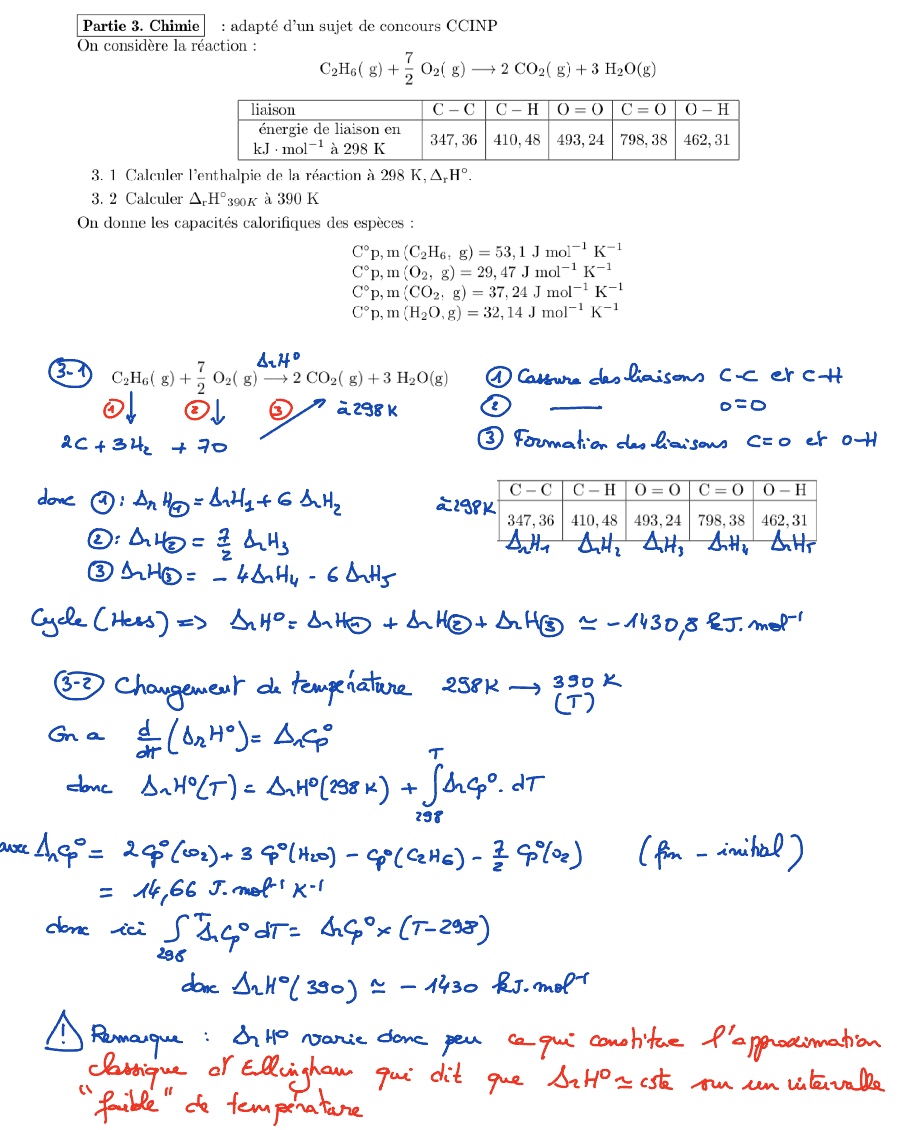 Partie 3. Chimie : adapté d'un sujet de concours CCINP
On considère la réaction :
C₂H₆( g) + 7/2 O₂( g) ⟶ 2 CO₂( g) + 3 H₂O(g)
liaison C − C C − H O = O C = O O − H
énergie de liaison en kJ · mol⁻¹ à 298 K 347,36 410,48 493,24 798,38 462,31
3. 1 Calculer l'enthalpie de la réaction à 298 K, ΔᵣH°.
3. 2 Calculer ΔᵣH°₃₉₀K à 390 K
On donne les capacités calorifiques des espèces :
C°p, m (C₂H₆, g) = 53,1 J mol⁻¹ K⁻¹
C°p, m (O₂, g) = 29,47 J mol⁻¹ K⁻¹
C°p, m (CO₂, g) = 37,24 J mol⁻¹ K⁻¹
C°p, m (H₂O, g) = 32,14 J mol⁻¹ K⁻¹
3-1 C₂H₆( g) + 7/2 O₂( g) ⟶ 2 CO₂( g) + 3 H₂O(g)
ΔrH°
① ↓ ② ↓ ③ à 298 K
2C + 3H₂ + 7O
① Cassure des liaisons C-C et C-H
② —— O=O
③ Formation des liaisons C=O et O-H
donc ①: ΔrH① = ΔrH₁ + 6 ΔrH₂
②: ΔrH② = 7/2 ΔrH₃
③ ΔrH③ = - 4ΔrH₄ - 6 ΔrH₅
à 298K C − C C − H O = O C = O O − H
347,36 410,48 493,24 798,38 462,31
ΔrH₁ ΔrH₂ ΔrH₃ ΔrH₄ ΔrH₅
Cycle (Hess) => ΔrH° = ΔrH① + ΔrH② + ΔrH③ ≃ -1430,8 kJ.mol⁻¹
3-2 Changement de température 298K → 390 K
(T)
On a d/dT (ΔrH°) = ΔrCp°
donc ΔrH°(T) = ΔrH°(298 K) + ∫₂₉₈ᵀ ΔrCp°. dT
avec ΔrCp° = 2 Cp°(CO₂) + 3 Cp°(H₂O) - Cp°(C₂H₆) - 7/2 Cp°(O₂) (fin - initial)
= 14,66 J.mol⁻¹ K⁻¹
donc ici ∫₂₉₈ᵀ ΔrCp° dT = ΔrCp° × (T-298)
donc ΔrH°(390) ≃ - 1430 kJ.mol⁻¹
! Remarque : ΔrH° varie donc peu ce qui constitue l'approximation
classique d'Ellingham qui dit que ΔrH° ≃ cste sur un intervalle
"faible" de température